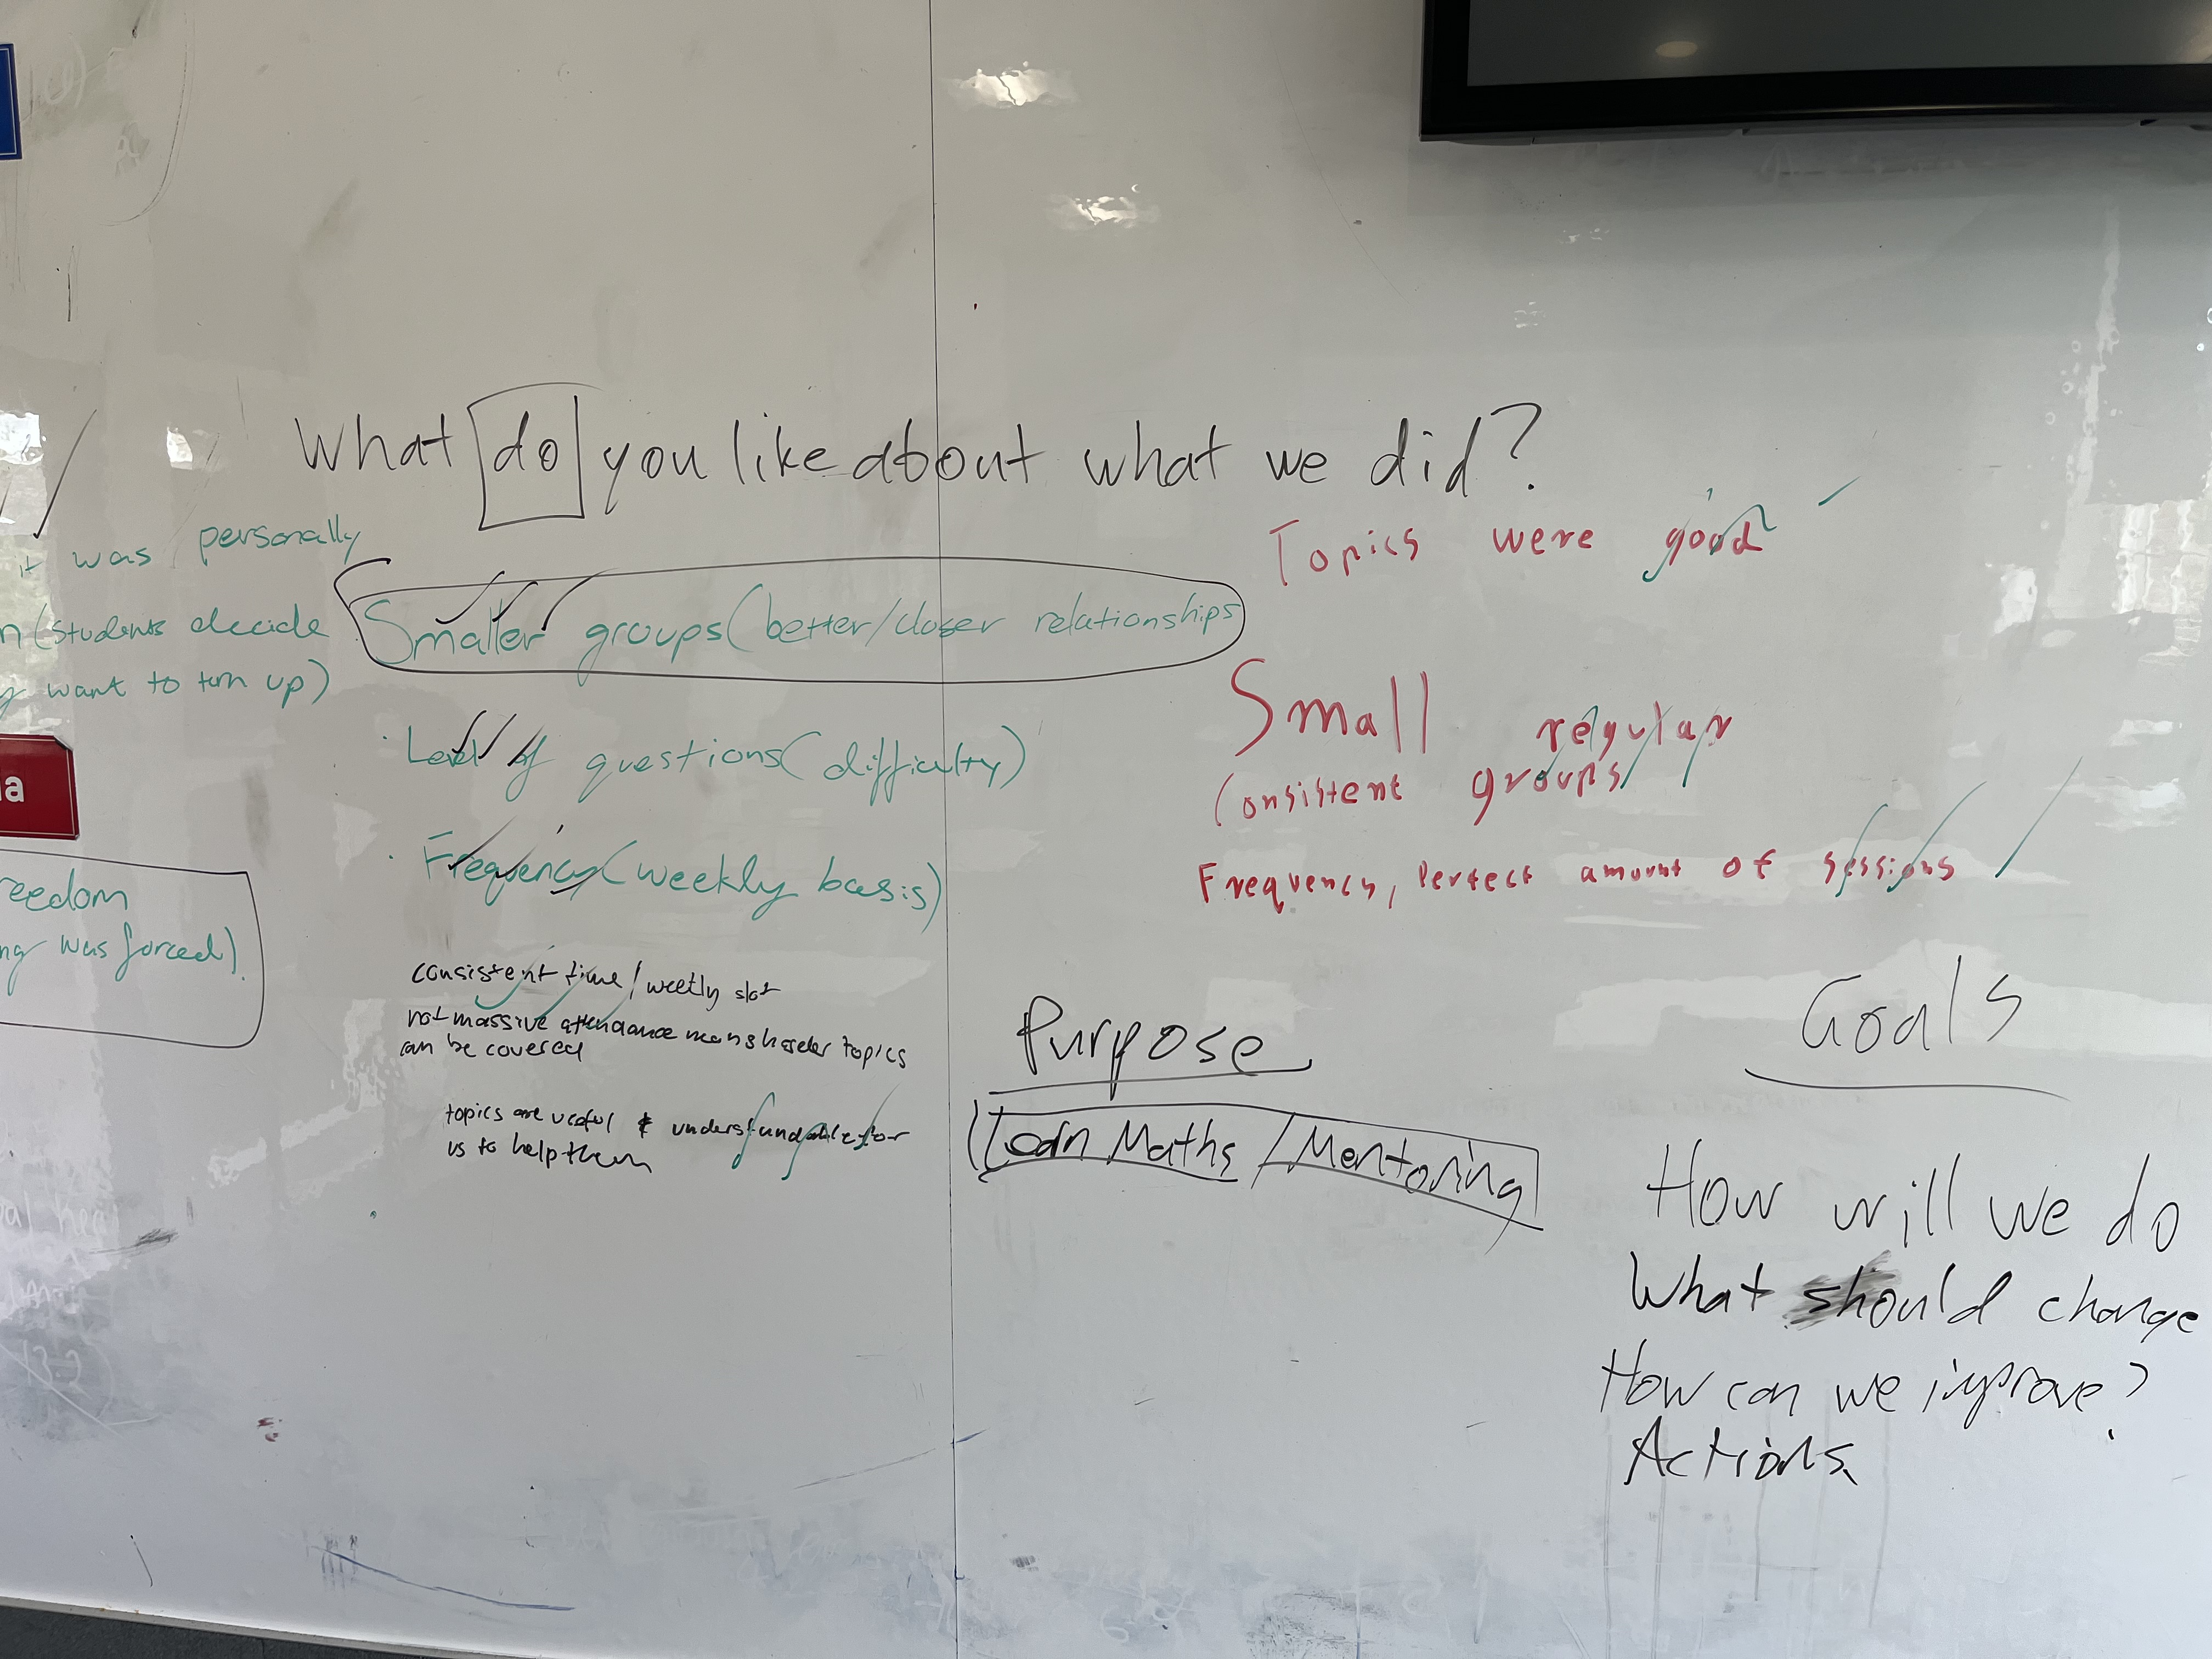 What do you like about what we did?
it was personally
(students decide
want to turn up)
a
reedom
ng was forced)
Smaller groups (better/closer relationships
· Level of questions (difficulty)
· Frequency (weekly basis)
consistent time / weekly slot
not massive attendance means harder topics
can be covered
topics are useful & understandable for
us to help them
Topics were good
Small regular
Consistent groups
Frequency, Perfect amount of sessions
Purpose
(Learn Maths / Mentoring
Goals
How will we do
What should change
How can we improve?
Actions